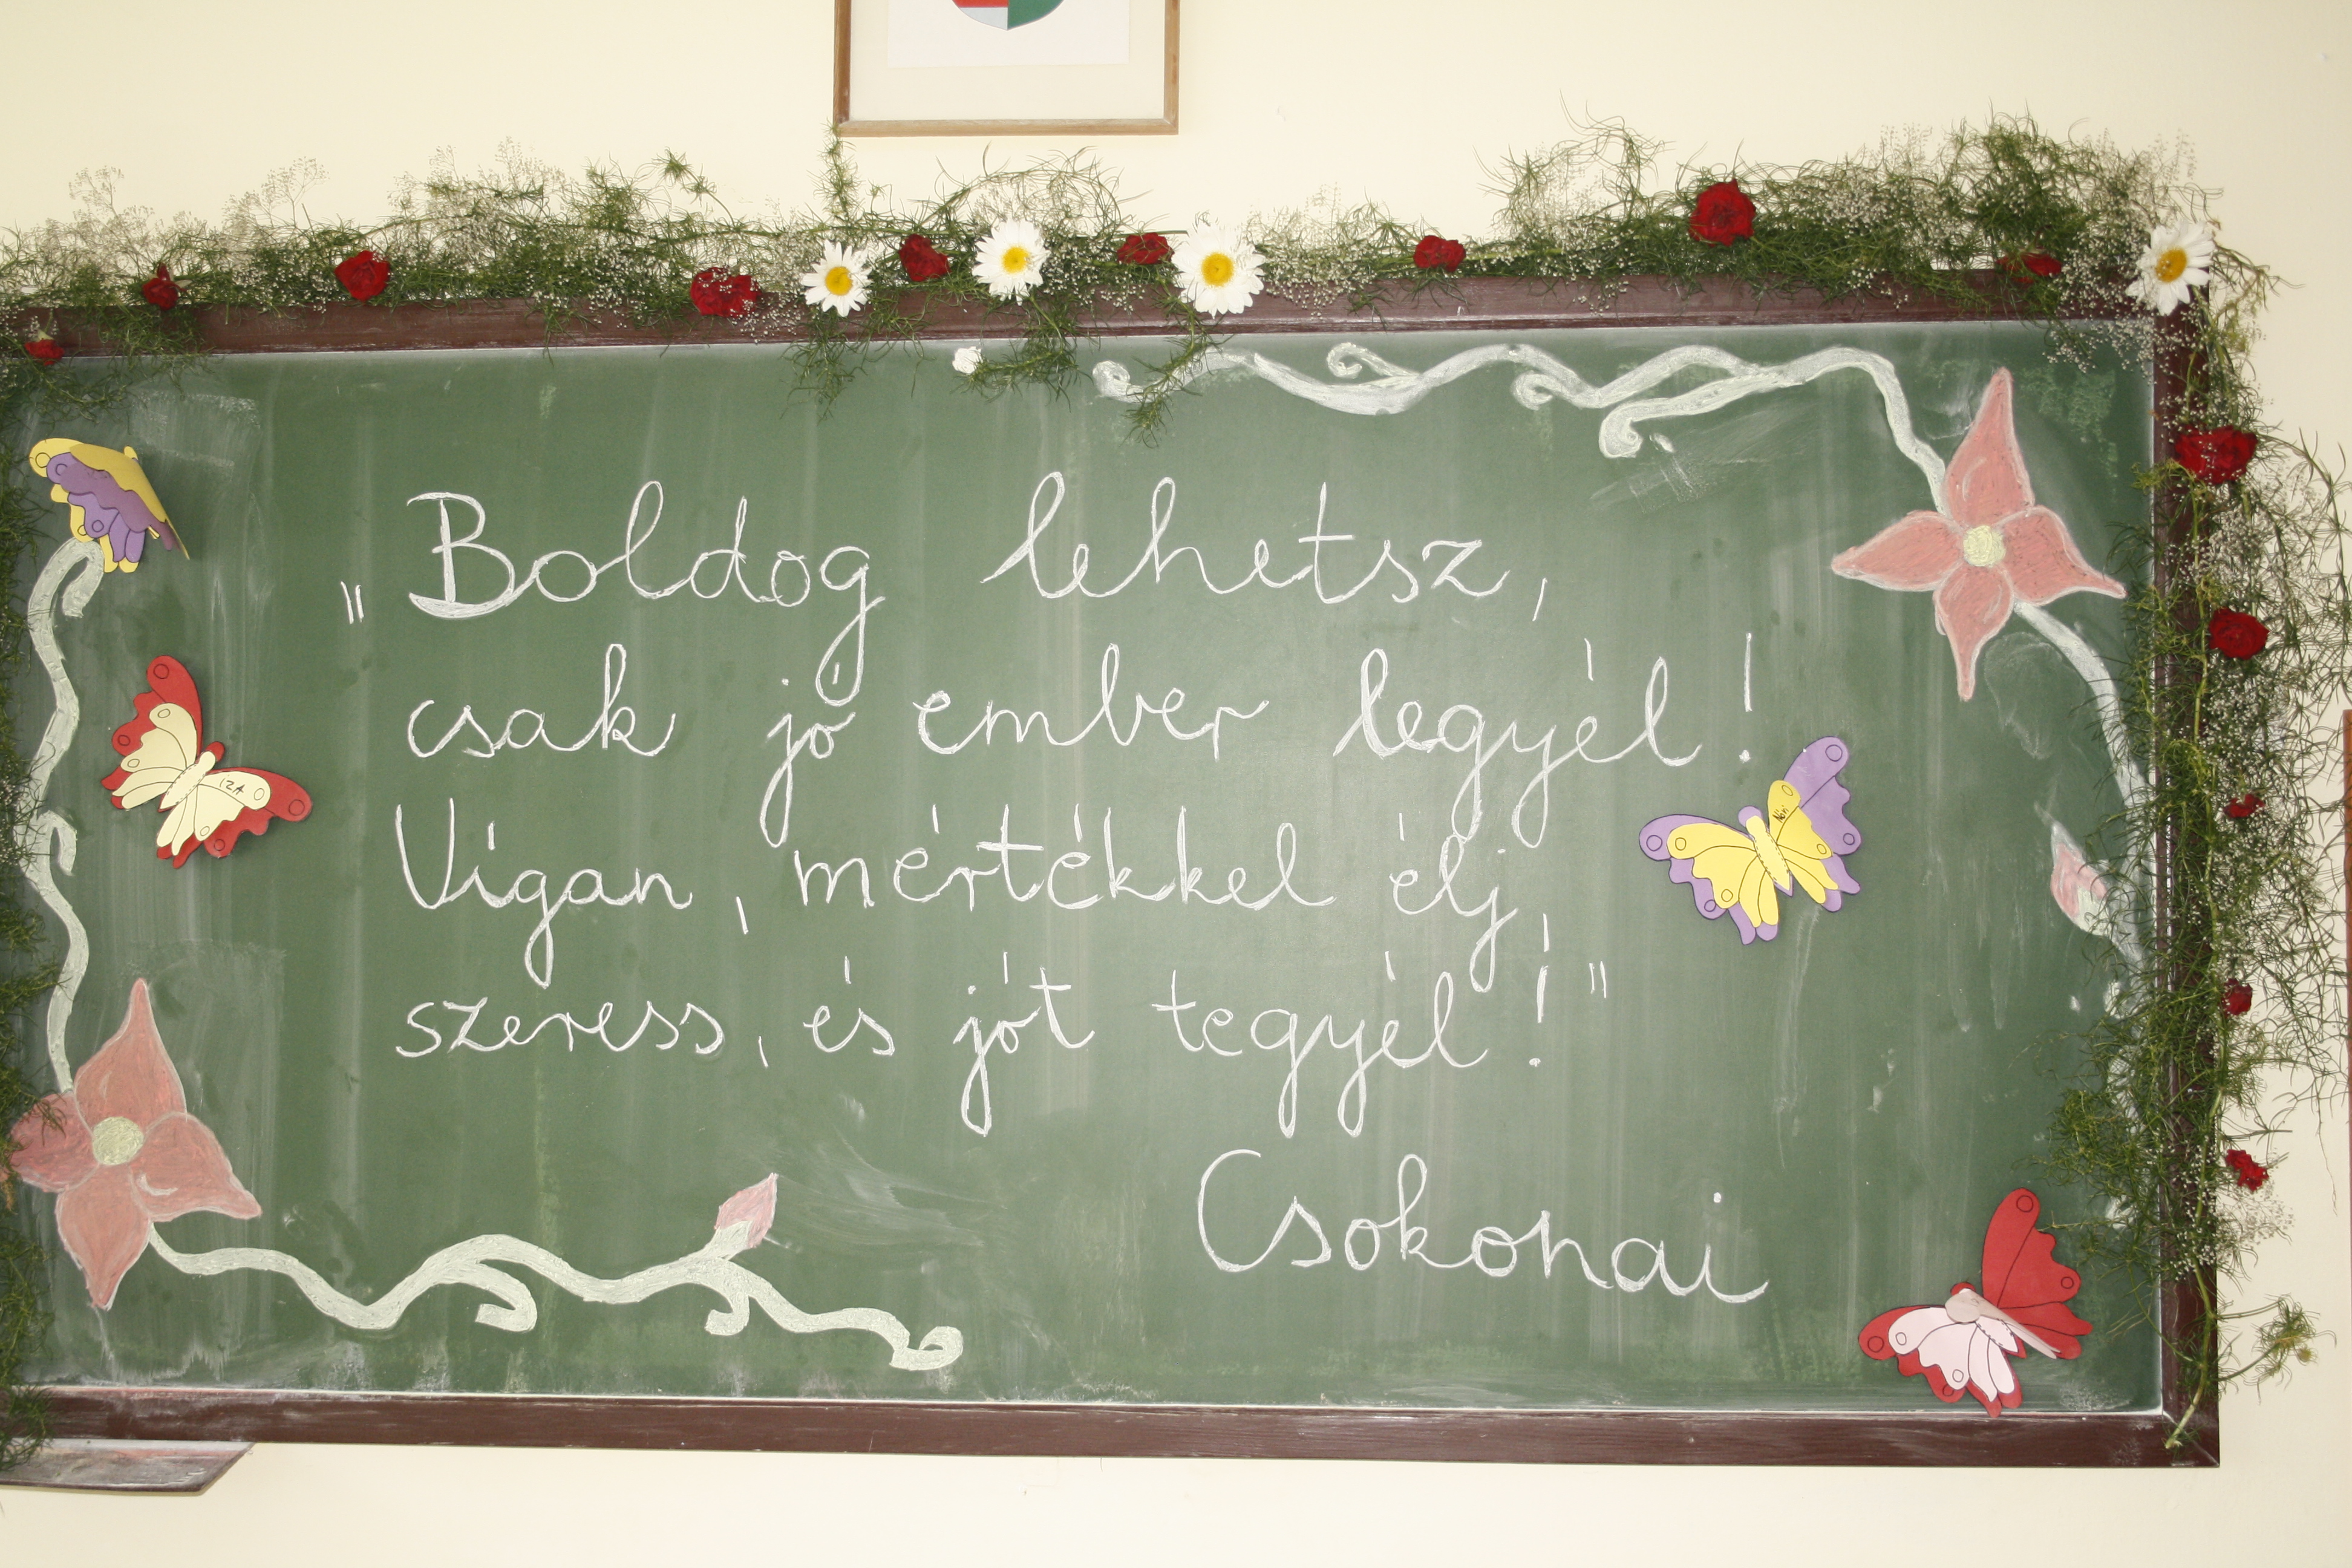 „Boldog lehetsz,
csak jó ember legyél!
Vígan, mértékkel élj,
szeress, és jót tegyél!"
Csokonai
IZA